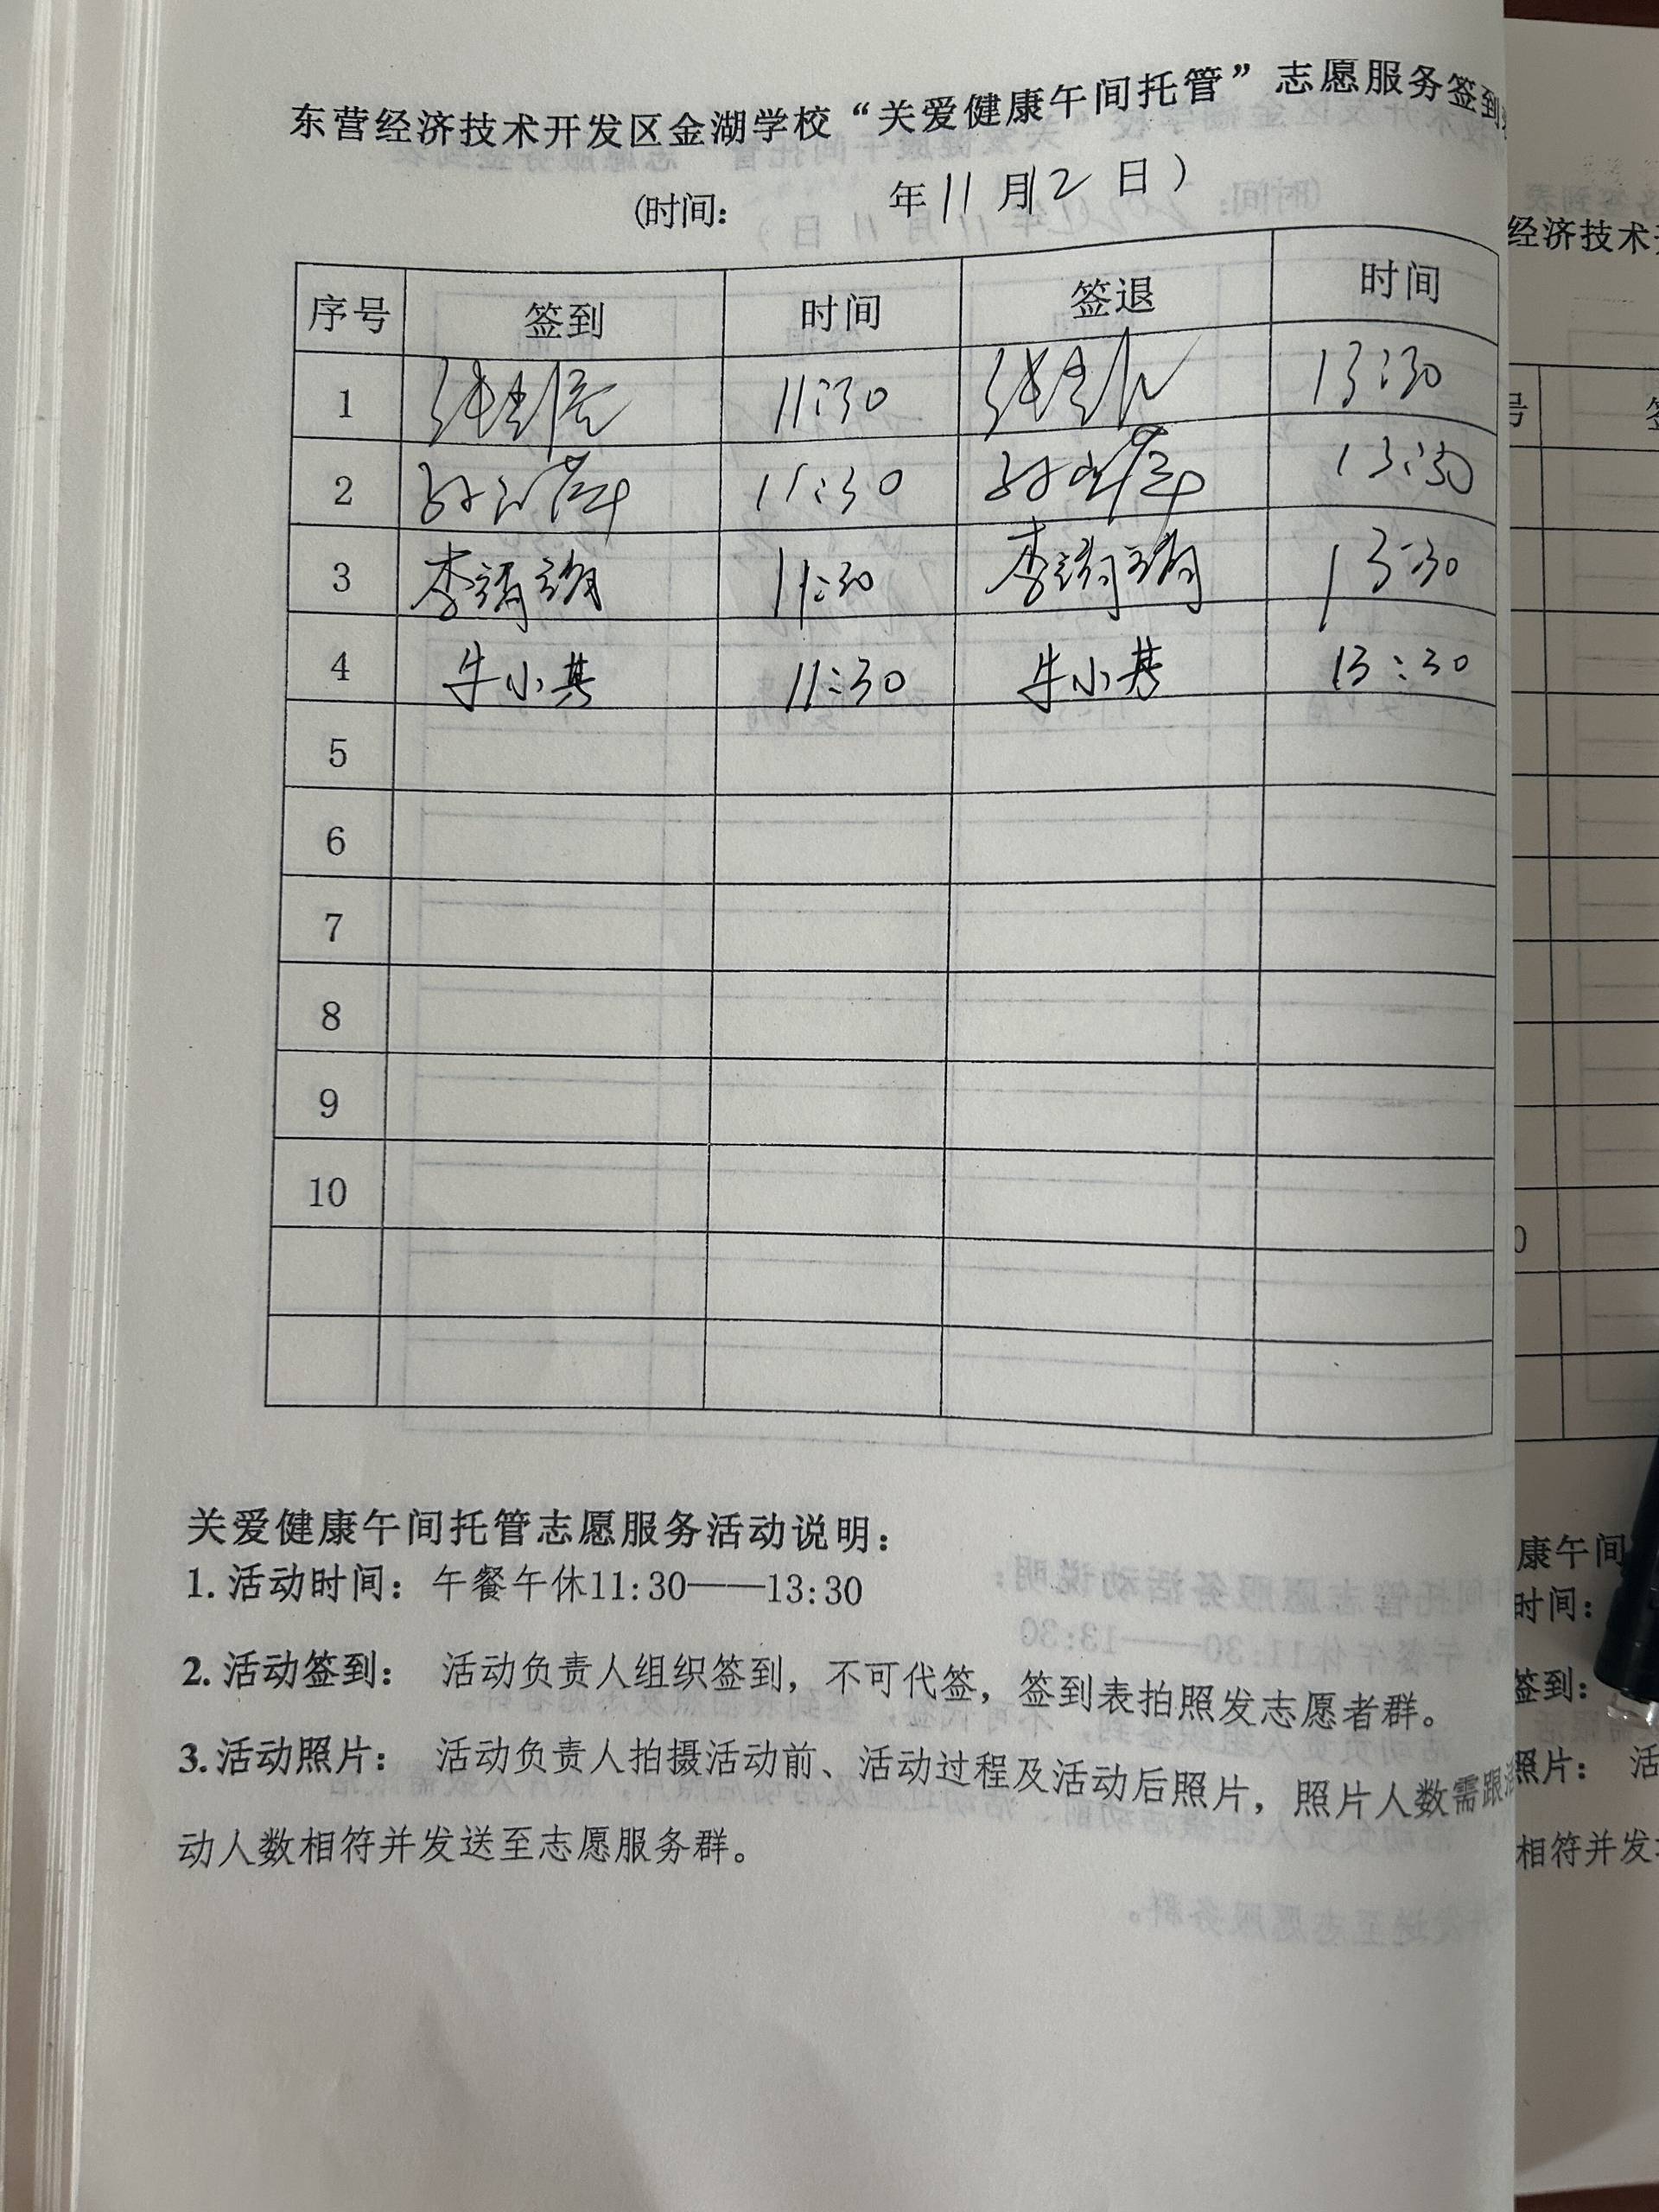 东营经济技术开发区金湖学校“关爱健康午间托管”志愿服务签到
(时间: 年11月12日)
序号 签到 时间 签退 时间
1 11:30 13:30
2 11:30 13:30
3 李 11:30 李 13:30
4 牛小 11:30 牛小 13:30
5
6
7
8
9
10
关爱健康午间托管志愿服务活动说明:
1. 活动时间: 午餐午休11:30——13:30
2. 活动签到: 活动负责人组织签到，不可代签，签到表拍照发志愿者群。
3. 活动照片: 活动负责人拍摄活动前、活动过程及活动后照片，照片人数需跟活
动人数相符并发送至志愿服务群。
经济技术
号
康午间
时间:
签到:
照片: 活
相符并发